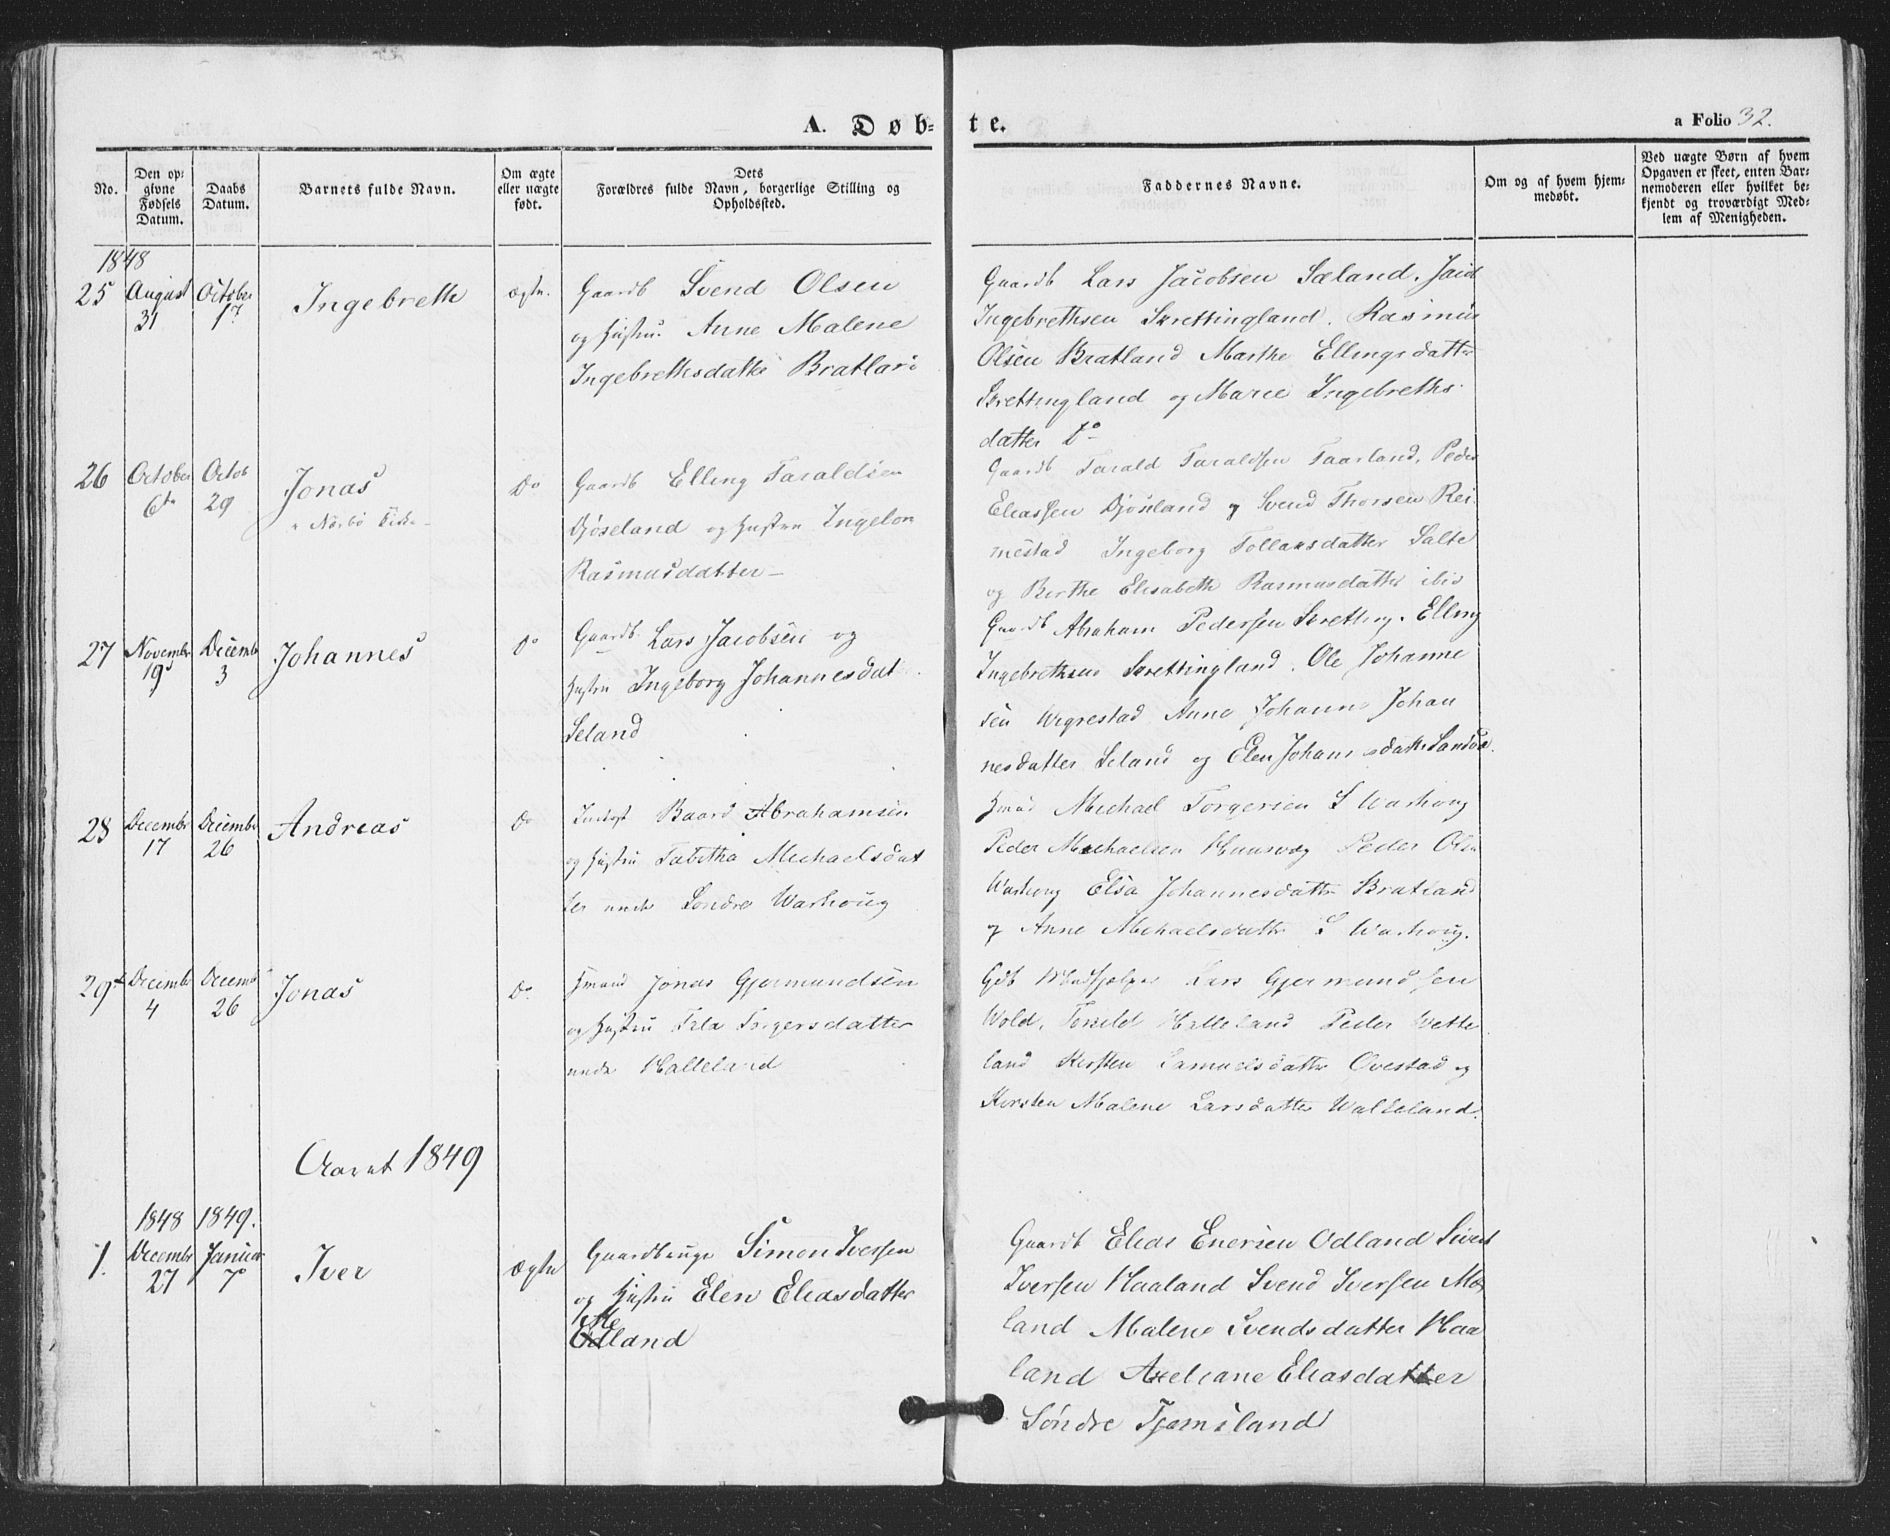 A. Døb-
te.
a Folio 32.
No.
Den op-
givne
Fødsels
Datum.
Daabs
Datum.
Barnets fulde Navn.
Om ægte
eller uægte
født.
Dets
Forældres fulde Navn, borgerlige Stilling og
Opholdssted.
Faddernes Navne.
Om og af hvem hjem-
medøbt.
Ved uægte Børn af hvem
Opgaven er skeet, enten Bar-
nemoderen eller hvilket be-
kjendt og troværdigt Med-
lem af Menigheden.
1848
25 August 31 October 17 Ingebreth ægte.
Gaardb Svend Olsen
og Hustru Anne Malene
Ingebrethsdatter
Gaardb Lars Jacobsen Sæland.
Ingebrethsen Skrettingland. Rasmus
Olsen Bratland Marthe Ellingsdatter
Skrettingland og Marie Ingebreths
datter Do
26 October 6te Octob 29 Jonas Do
Gaardb Elling Taraldsen
og Hustru
Rasmusdatter
Gaardb Tarald Taraldsen Taarland, Peder
Eliassen og Svend Thorsen Rei
mestad Ingeborg Salte
og Berthe Elisabeth Rasmusdatter ibid
27 November 19 Decemb 3 Johannes Do
Gaardb. Lars Jacobsen og
Hustru Ingeborg Johannesdat
Seland
Gaardb Abraham Pedersen Skretting. Elling
Ingebrethsen Skrettingland. Ole Johanne
sen Wigrestad Anne Johanne Johan
nesdatter Seland og Elen
28 Decembr 17 Decembr 26 Andreas Do
Baard Abrahamsen
og Hustru Tabitha Michaelsdat
ter Søndre Warhoug
Hmd Michael Torgersen S Warhoug
Peder Michaelsen Peder Olsen
Warhoug Elsa Johannesdatter Bratland
og Anne Michaelsdatter S Warhoug.
29 Decembr 4 Decemb 26 Jonas Do
Hmand Jonas Gjermundsen
og Hustru
Halleland
Gdb Lars Gjermundsen
Wold, Halleland Peder Wette
land Kersten Samuelsdatter Ovestad og
Kersten Malene Larsdatter
Aaret 1849
1848 1849.
1. Decembr 27 Januar 7 Iver Ægte
Gaardbruger Simon Iversen
og Hustru Elen Eliasdatter
Odland
Gaardb Elias Enersen Odland Sivert
Iversen Haaland Svend Iversen Mæ
land Malene Svendsdatter Haa
land Axeliane Eliasdatter
Søndre Tjemsland